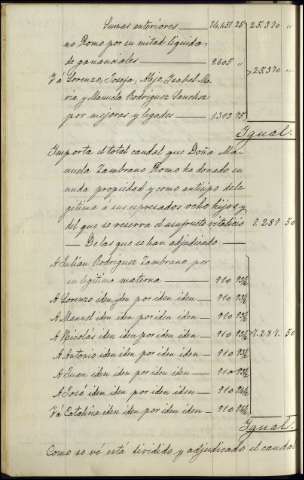 Sumas anteriores 24,451 25 25.370 "
no Romo por su mitad liquida
de gananciales 2605 "
Y á Lorenzo, Josefa, Alejo, Isabel Ma-
ria y Manuela Rodriguez Sanchez 25.370 "
por mejoras y legados 1303 25
Igual.
Importa el total caudal que Doña Ma-
nuela Zambrano Romo ha donado en
nuda propiedad y como anticipo de le-
gitima a sus expresados ocho hijos y
del que se reserva el usufructo vitalicio 7.287 50
De las que se han adjudicado
A Julian Rodriguez Zambrano por
su legitima materna 910
A Lorenzo iden por iden iden 910
A Manuel iden iden por iden iden 910
A Nicolás iden iden por iden iden 910 7.287 50
A Antonio iden iden por iden iden 910
A Juan iden iden por iden iden 910
A José iden iden por iden iden 910
Y á Catalina iden iden por iden iden 910
Igual
Como se vé está dividido y adjudicado el caudal